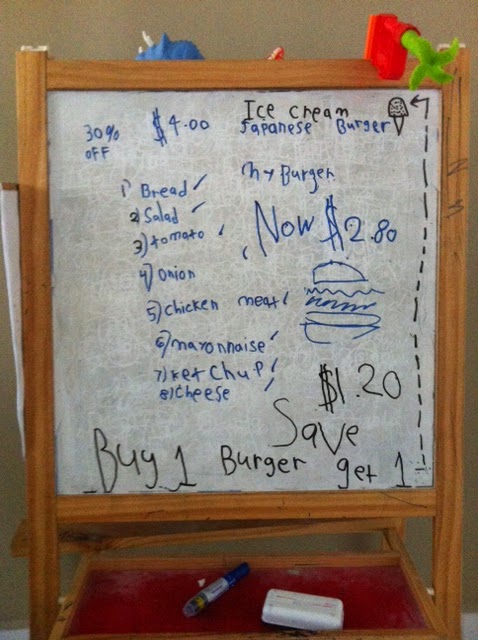 Ice cream
30% OFF
$4.00
Japanese Burger
my Burger
1) Bread ✓
2) Salad ✓
3) tomato ✓
4) Onion ✓
5) chicken meat ✓
6) mayonnaise ✓
7) ketchup ✓
8) cheese ✓
Now $2.80
$1.20
Save
Buy 1 Burger get 1